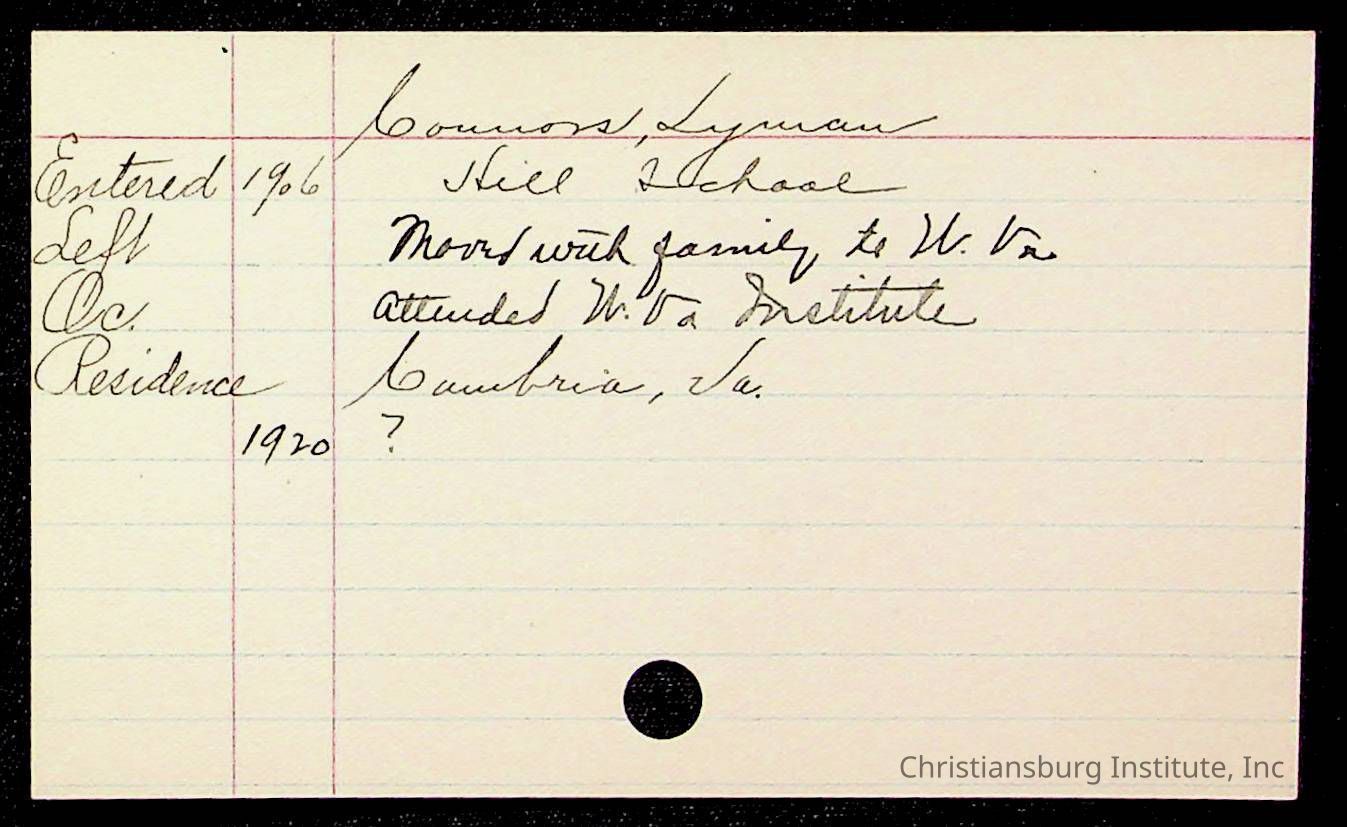 Connors, Lyman
Entered 1906 Hill School
Left Moved with family to W. Va.
Oc. Attended W. Va Institute
Residence Cambria, Va.
1920 ?
Christiansburg Institute, Inc